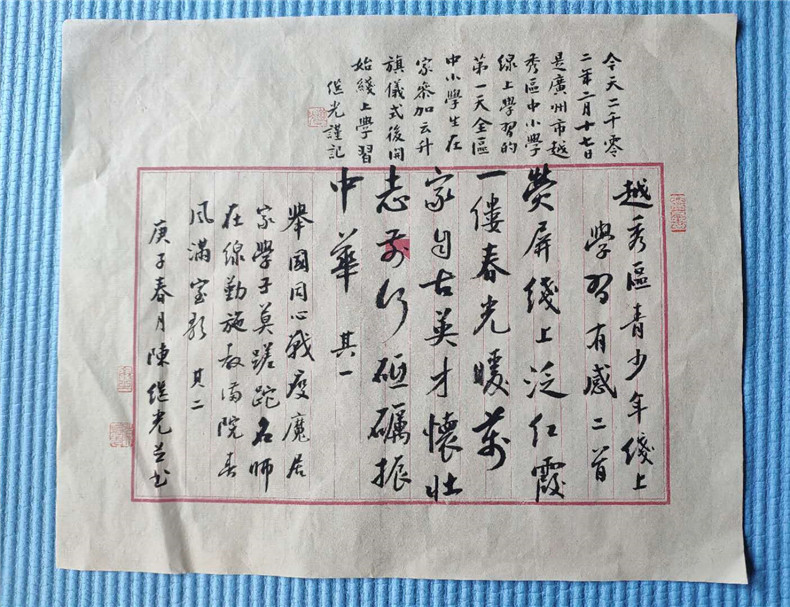 今天二千零
二年二月十七日
是廣州市越
秀區中小學
線上學習的
第一天全區
中小學生在
家參加云升
旗儀式後開
始綫上學習
继光謹記
越秀區青少年綫上
學習有感二首
熒屏綫上泛红霞
一缕春光暖萬
家自古英才懷壯
志前行砥礪振
中華 其一
舉國同心戰疫魔居
家學子莫蹉跎名师
在線勤施教满院春
风滿室歌 其二
庚子春月陳继光並书